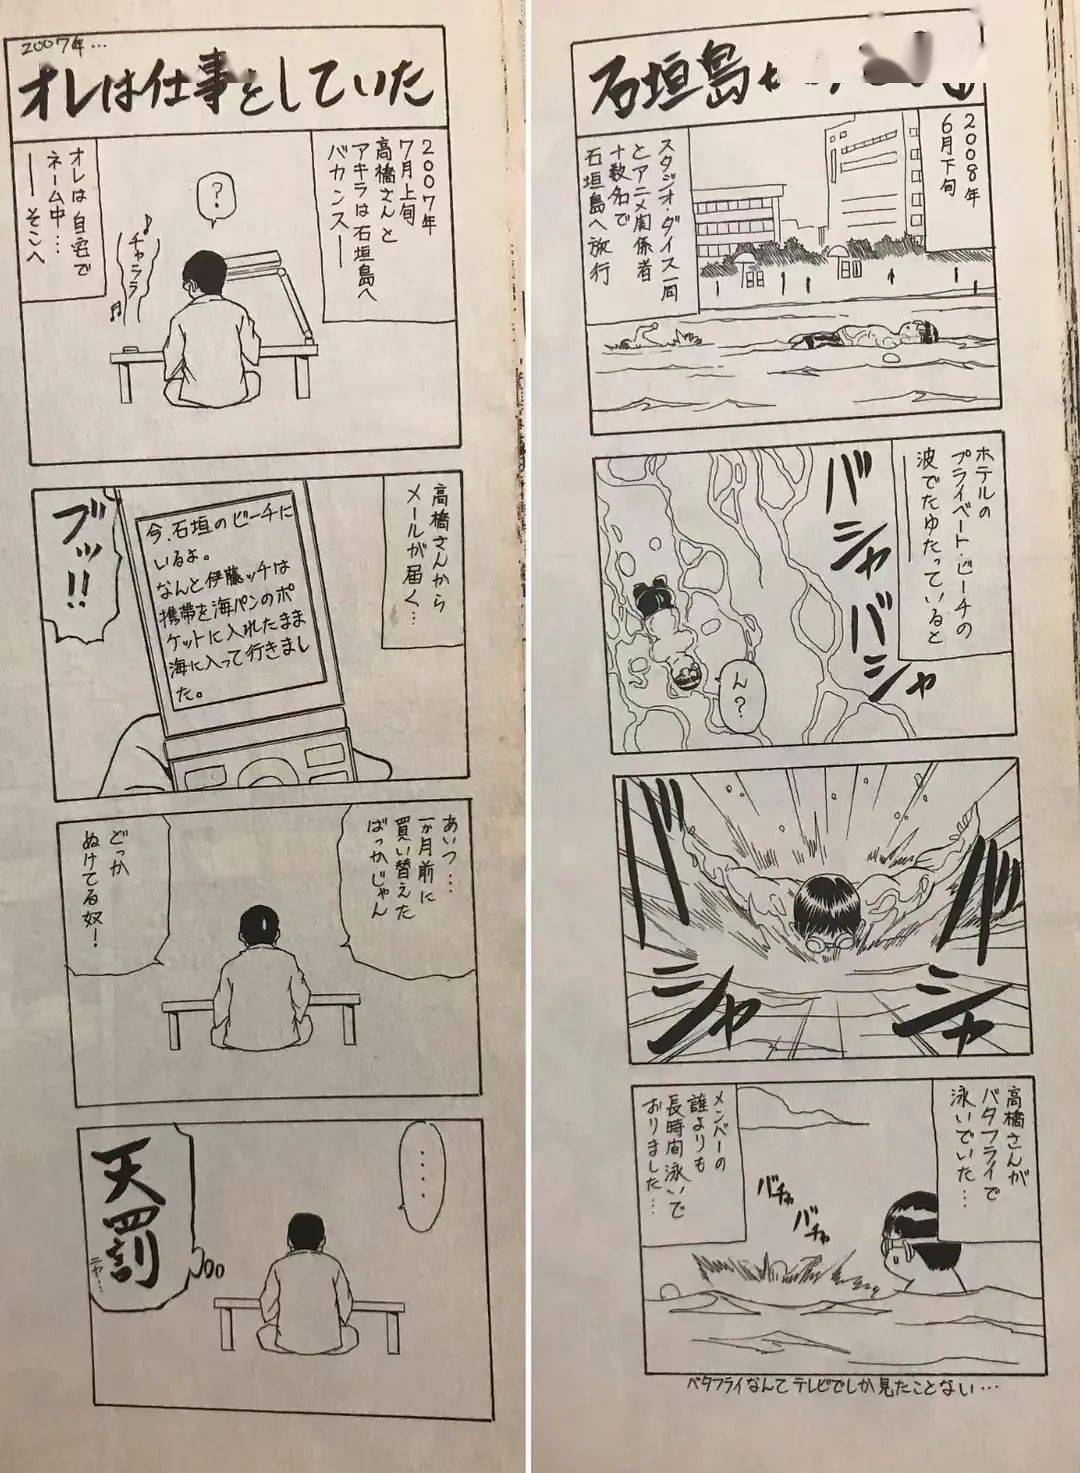 石垣島
2008年
6月下旬
スタジオ・ダイス一同
とアニメ関係者
十数名で
石垣島へ旅行
ホテルの
プライベート・ビーチの
波でたゆたっていると
──
バシャバシャ
ん？
バ
シャ
バ
シャ
高橋さんが
バタフライで
泳いでいた…
メンバーの
誰よりも
長時間泳いで
おりました…
バチャ
バチャ
バタフライなんてテレビでしか見たことない…
2007年…
オレは仕事をしていた
2007年
7月上旬
高橋さんと
アキラは石垣島へ
バカンス──
？
オレは自宅で
ネーム中…
──そこへ
♪チャララ♬
高橋さんから
メールが届く…
今、石垣のビーチに
いるよ。
なんと伊藤ッチは
携帯を海パンのポ
ケットに入れたまま
海に入って行きまし
た。
ブッ!!
あいつ…
一か月前に
買い替えた
ばっかじゃん
どっか
ぬけてる奴！
‥‥
天罰
ニヤ…